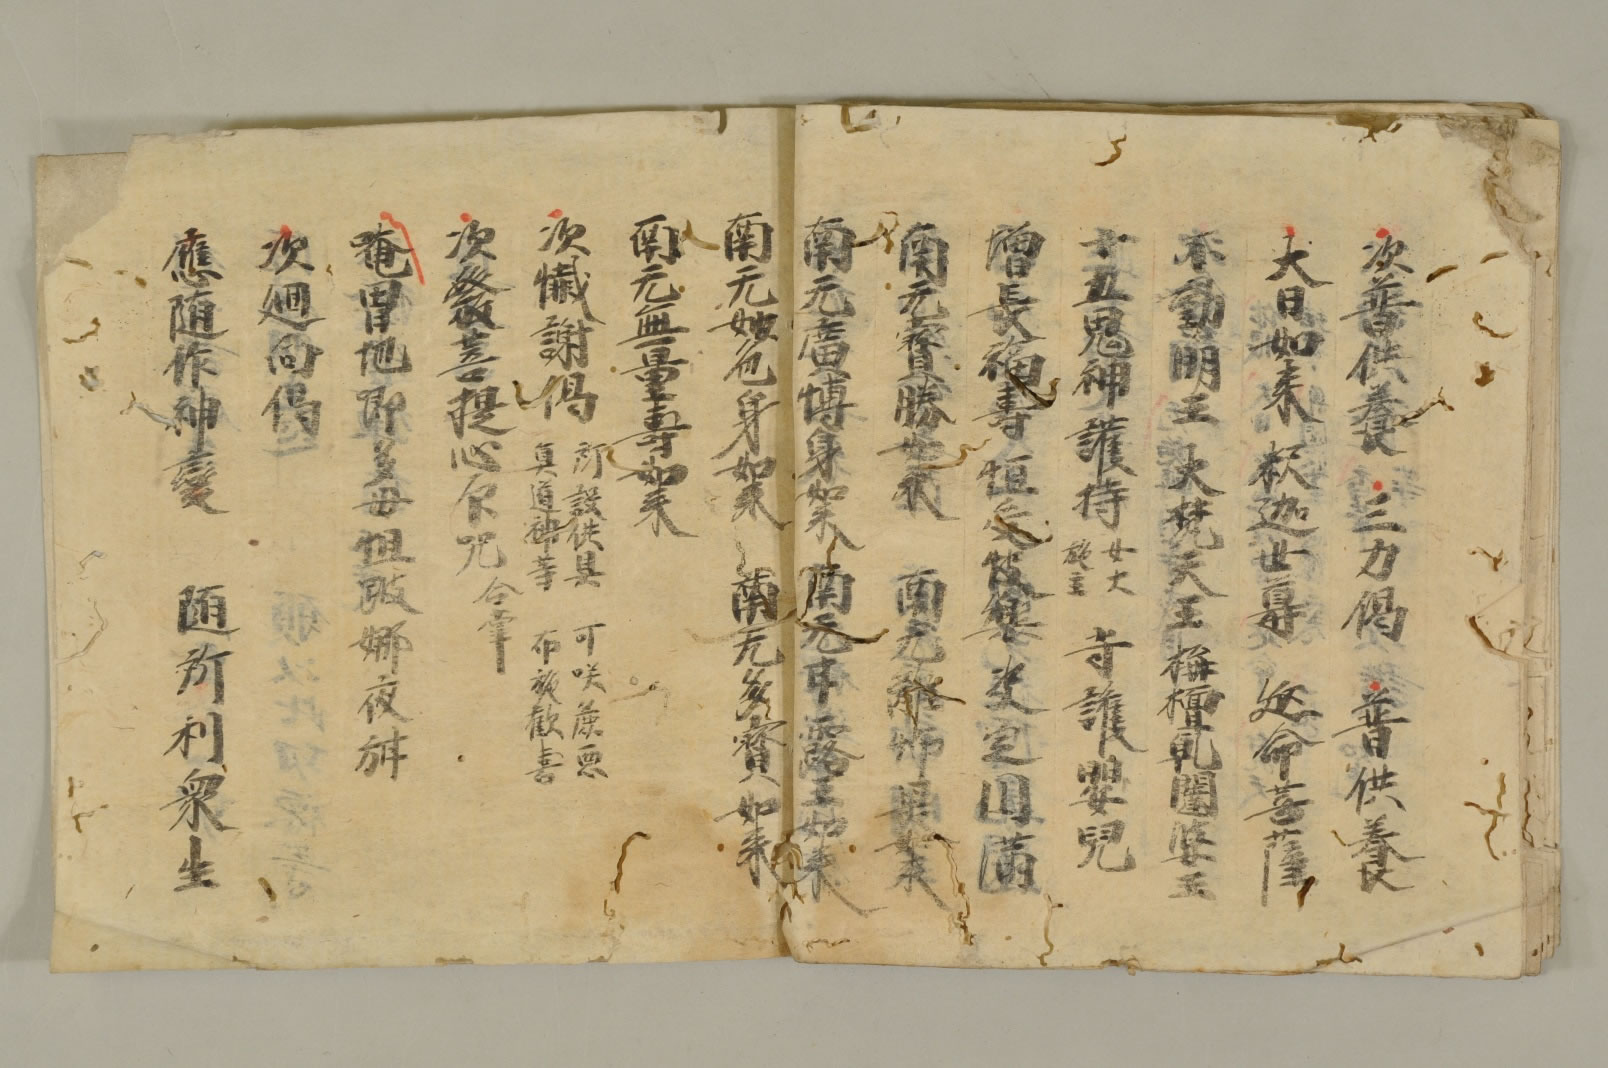 次普供養 三力偈 普供養
大日如来 釈迦世尊 延命菩薩
不動明王 大梵天王 栴檀乾闥婆王
十五鬼神 護持 女大 施主 等護嬰児
増長福寿 恒受快楽 決定円満
南无寳勝如来 南无離怖畏如来
南无廣博身如来 南无甘露王如来
南无妙色身如来 南无多寳如来
南无無量寿如来
次懺謝偈 所設供具 可咲蔑悪
真道神等 布施歓喜
次發菩提心尓咒 合掌
唵冒地即多母怛跛娜夜弭
次廻向偈
應随作神變 随所利衆生